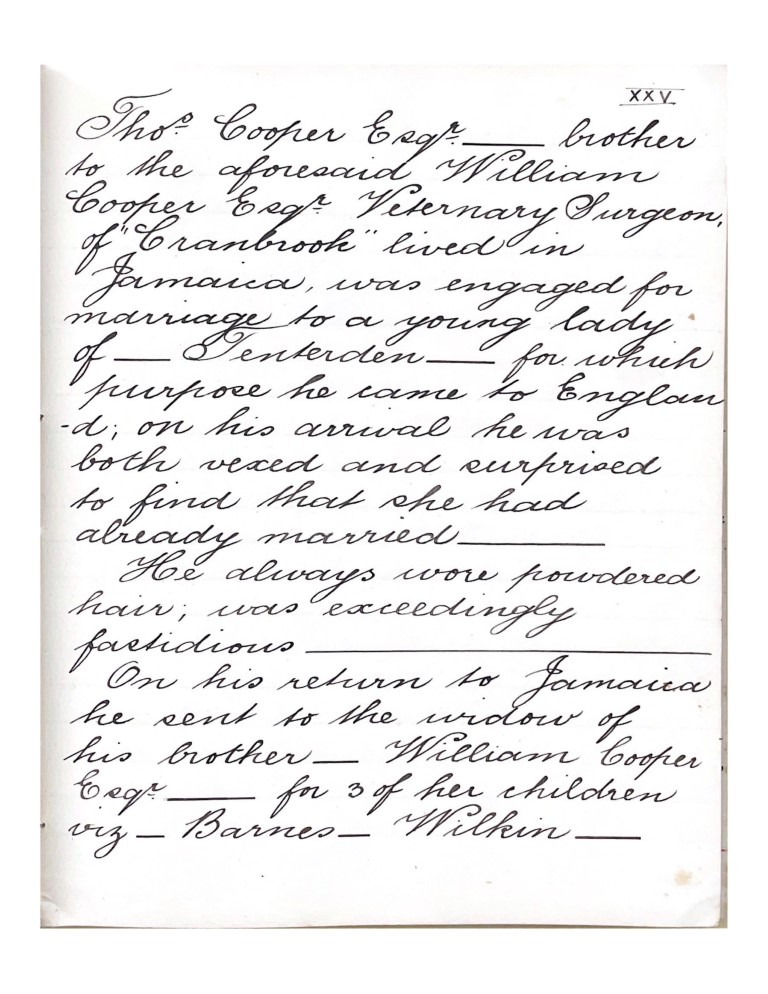 XXV
Thoˢ Cooper Esqʳ. — brother
to the aforesaid William
Cooper Esqʳ Veternary Surgeon,
of "Cranbrook" lived in
Jamaica, was engaged for
marriage to a young lady
of — Tenterden — for which
purpose he came to Englan
-d; on his arrival he was
both vexed and surprised
to find that she had
already married —
He always wore powdered
hair; was exceedingly
fastidious —
On his return to Jamaica
he sent to the widow of
his brother — William Cooper
Esqʳ — for 3 of her children
viz — Barnes — Wilkin —